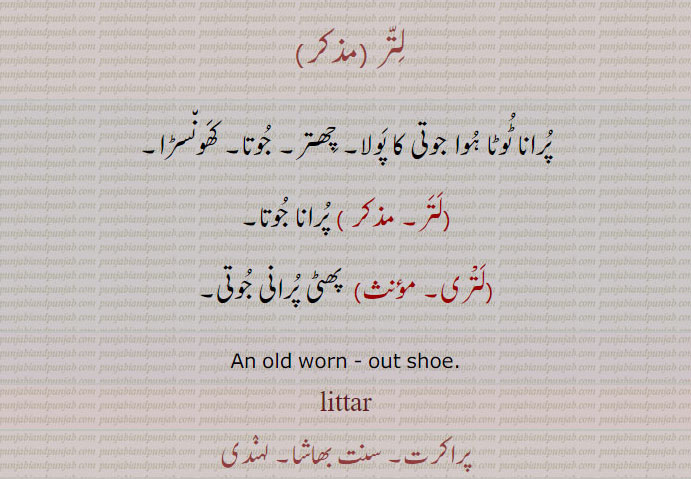 لِتّر (مذکر)
پُرانا ٹُوٹا ہُوا جوتی کا پَولا۔ چِھتر۔ جُوتا۔ کھَونّسڑا۔
(لَتَر۔ مذکر) پُرانا جُوتا۔
(لَتْری۔ مؤنث) پھٹی پُرانی جُوتی۔
An old worn - out shoe.
littar
پراکرت۔ سنت بھاشا۔ لہندی